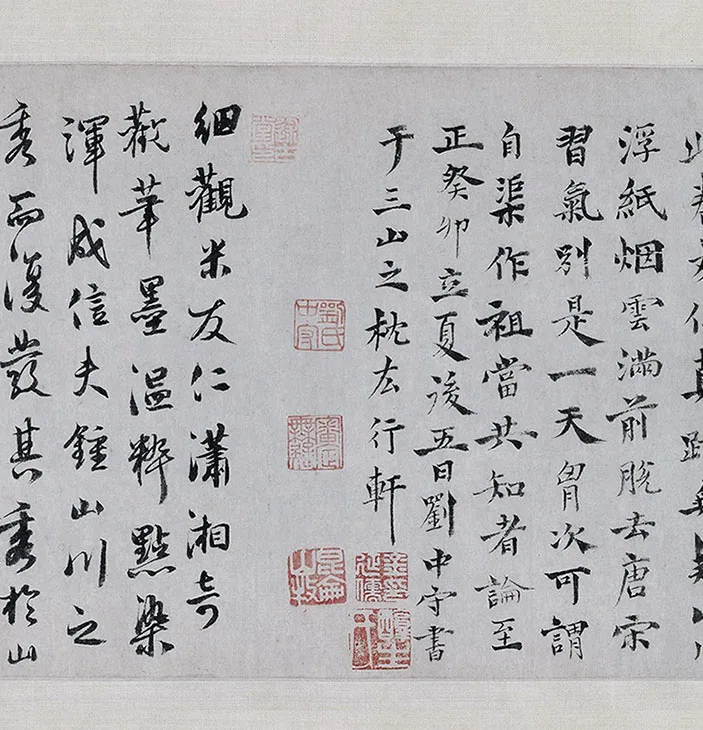 浮紙烟雲滿前脫去唐宋
習氣別是一天胷次可謂
自渠作祖當共知者論至
正癸卯立夏後五日劉中守書
于三山之枕厷行軒
劉氏中守
崑崙山牧
細觀米友仁瀟湘奇
觀筆墨溫粹點染
渾成信夫鍾山川之
秀而復發其秀於山